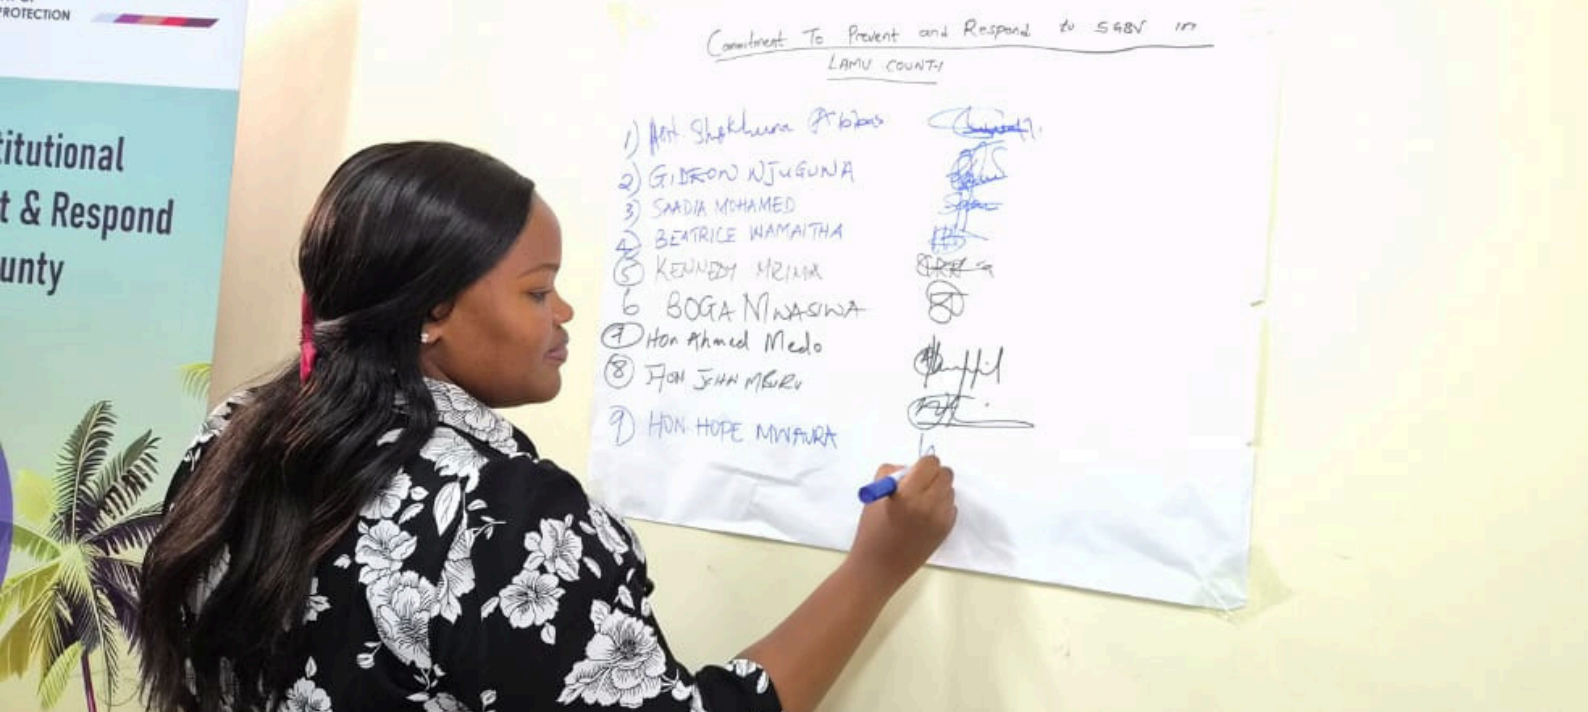 PROTECTION
titutional
t & Respond
unty
Commitment To Prevent and Respond to SGBV in
LAMU COUNTY
1)
2) GIDEON NJUGUNA
3) SAADIA MOHAMED
4) BEATRICE WAMAITHA
5 KENNEDY
6 BOGA MWASIWA
7 Hon Ahmed Medo
8 HON JOHN MBURU
9) HON HOPE MWAURA